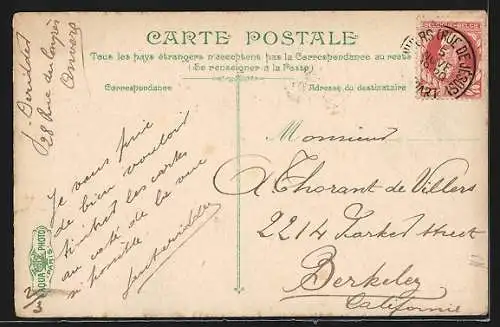 CARTE POSTALE
Tous les pays étrangers n'acceptent pas la Correspondance au recto
(Se renseigner à la Poste)
Correspondance
Adresse du destinataire
28 Rue du Congrès
Anvers
Je vous prie
de bien vouloir
timbrer les cartes
au coté de la vue
si possible
Monsieur
A Thorant de Villers
2214 Parker Street
Berkeley
Californie
AQUA PHOTO
PARIS
2/3